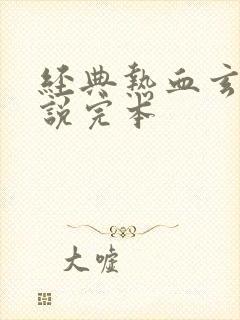 經典熱血玄
說完本
大噓